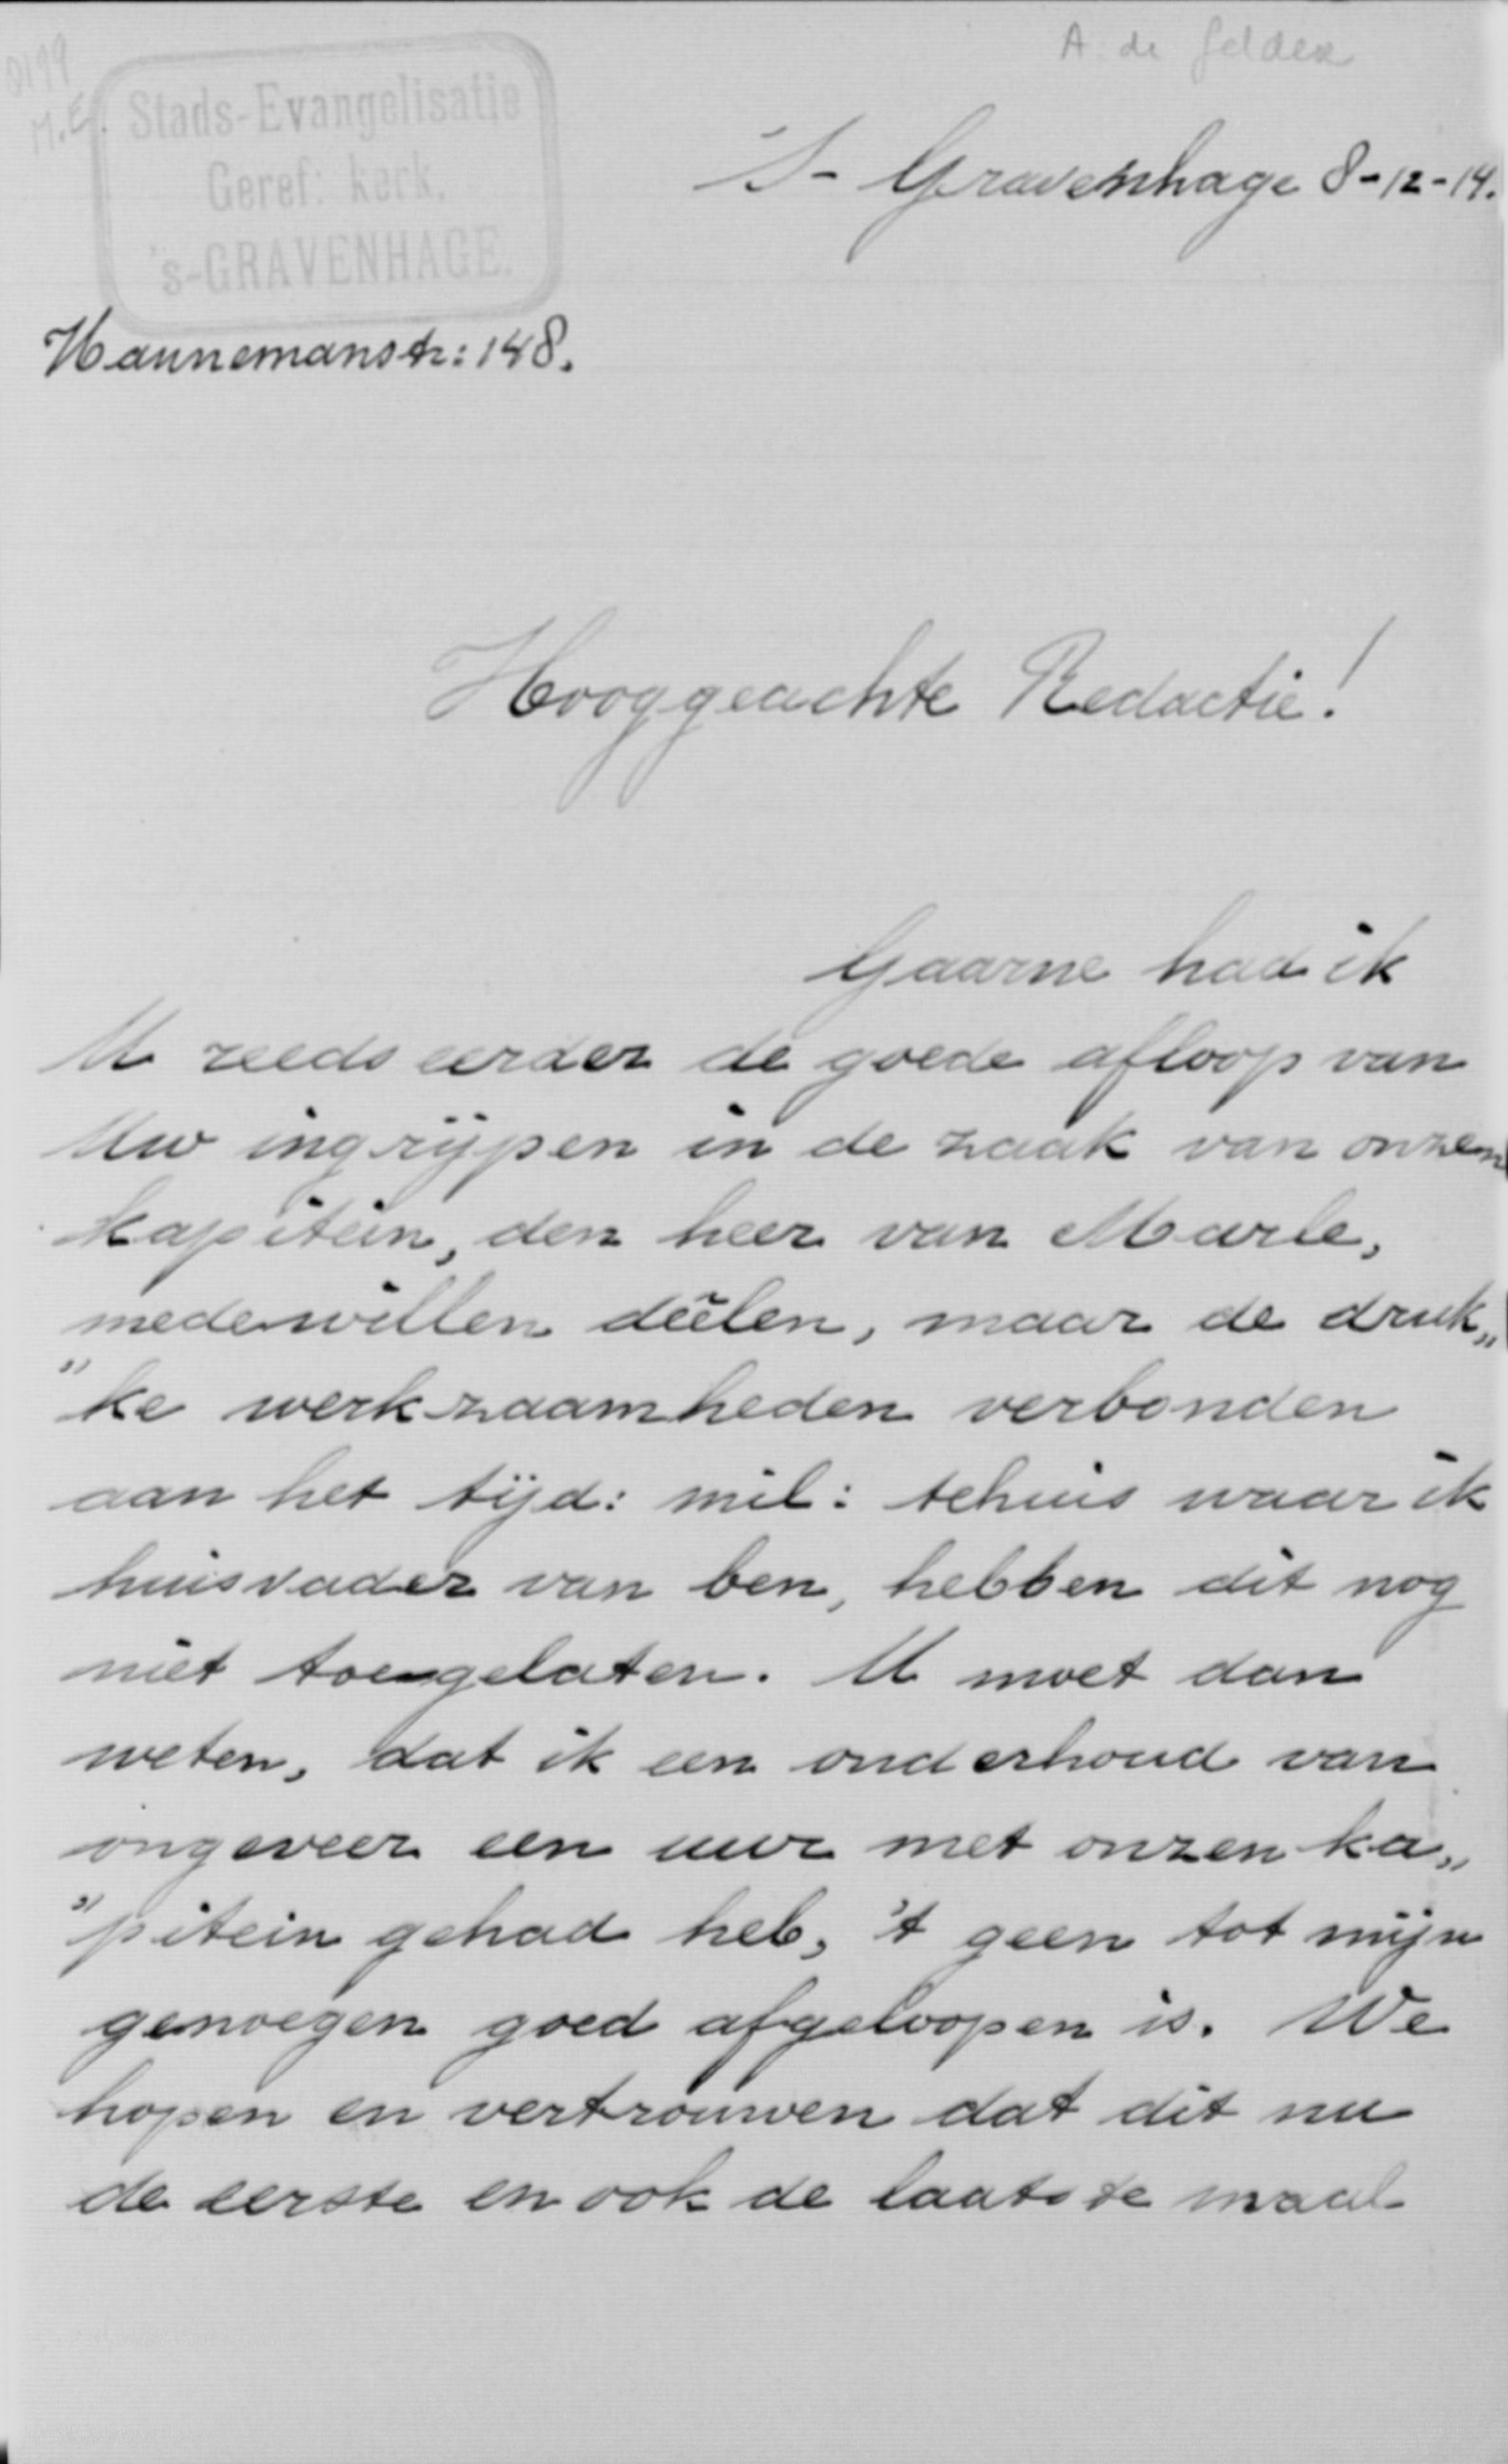 A. de Gelder
0199
M.E.
Stads-Evangelisatie
Geref: kerk.
's-GRAVENHAGE.
'S- Gravenhage 8-12-14.
Hannemanstr: 148.
Hooggeachte Redactie!
Gaarne had ik
U reeds eerder de goede afloop van
Uw ingrijpen in de zaak van onzen
kapitein, den heer van Marle,
mede willen deelen, maar de druk„
"ke werkzaamheden verbonden
aan het tijd: mil: tehuis waar ik
huisvader van ben, hebben dit nog
niet toegelaten. U moet dan
weten, dat ik een onderhoud van
ongeveer een uur met onzen ka„
"pitein gehad heb, 't geen tot mijn
genoegen goed afgeloopen is. We
hopen en vertrouwen dat dit nu
de eerste en ook de laatste maal